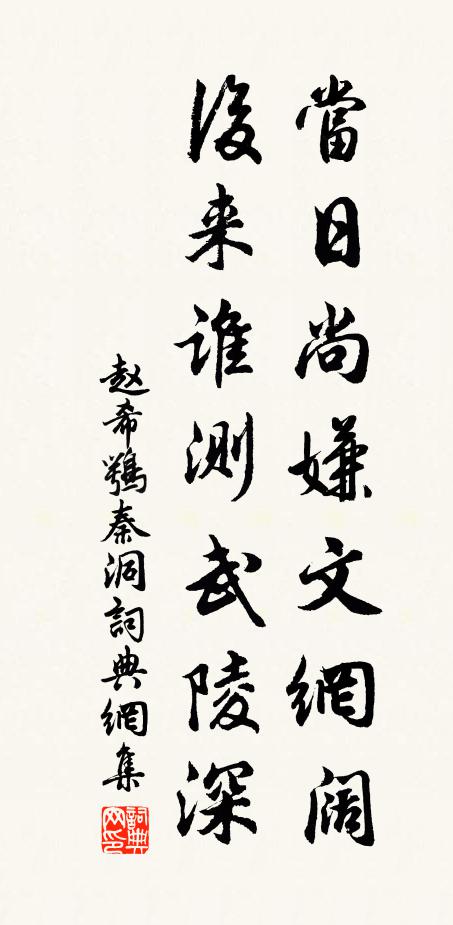 當日尚嫌文網阔
後来誰測武陵深
赵希鶚秦洞詞典網集
詞典网印